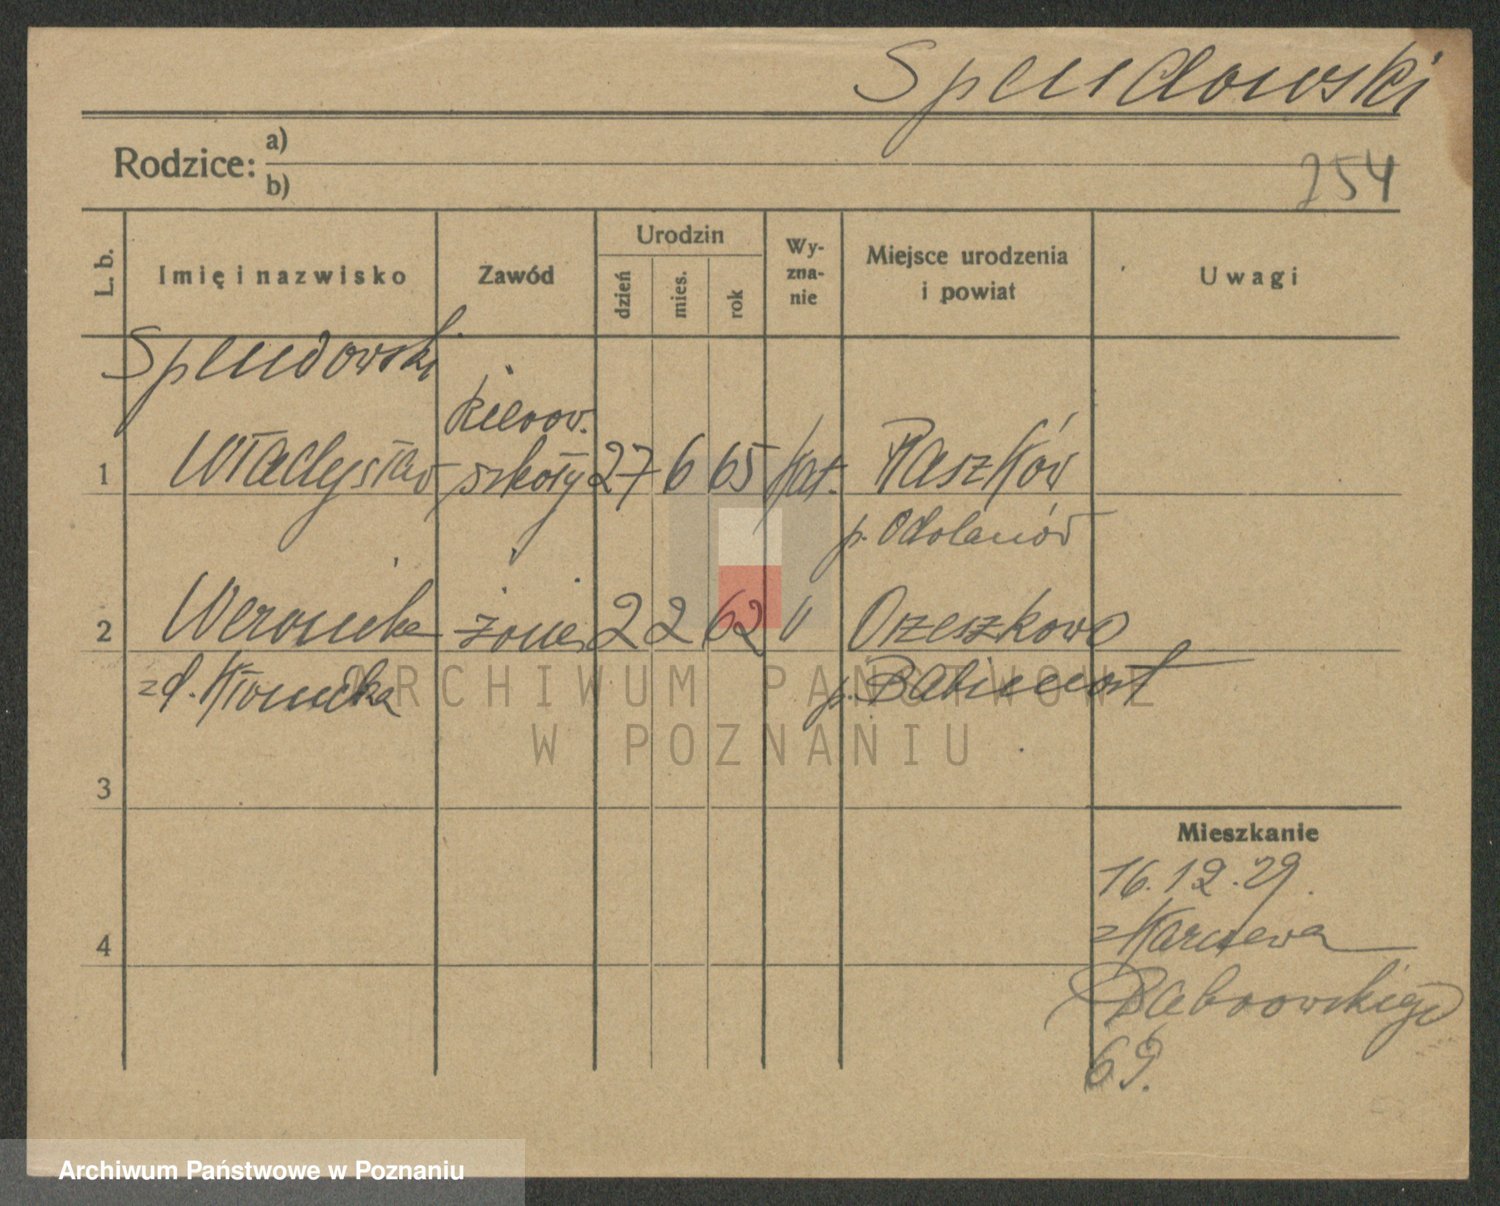 Spendowski
Rodzice: a)
b)
254
L. b. Imię i nazwisko Zawód Urodzin dzień mies. rok Wy-zna-nie Miejsce urodzenia i powiat Uwagi
Spendowski
kierow.
1 Władysław szkoły 27 6 65 kat. Raszków
p. Odolanów
2 Weronika żona 2 2 62 " Orzeszkowo
z d. p. Babimost
ARCHIWUM PAŃSTWOWE
W POZNANIU
3
Mieszkanie
16.12.29.
z Karnewa
4
Dąbrowskiego
69.
Archiwum Państwowe w Poznaniu